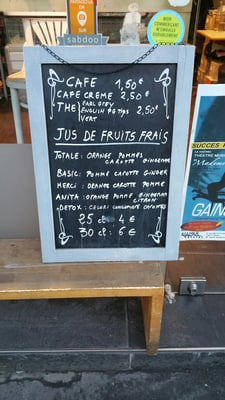 sabdoo
CAFE 1,50€
CAFE CREME 2,50€
THE EARL GREY
ENGLISH PG TIPS 2,50€
VERT
JUS DE FRUITS FRAIS
TOTALE: ORANGE POMMES
CAROTTE GINGEMBRE
BASIC: POMME CAROTTE GINGER
MERCI: ORANGE CAROTTE POMME
ANITA: ORANGE POMME GINGEMBRE
CITRON
DETOX: CELERI CONCOMBRE CAROTTES
25 cl 4€
30 cl 6€
SUCCES
GAIN